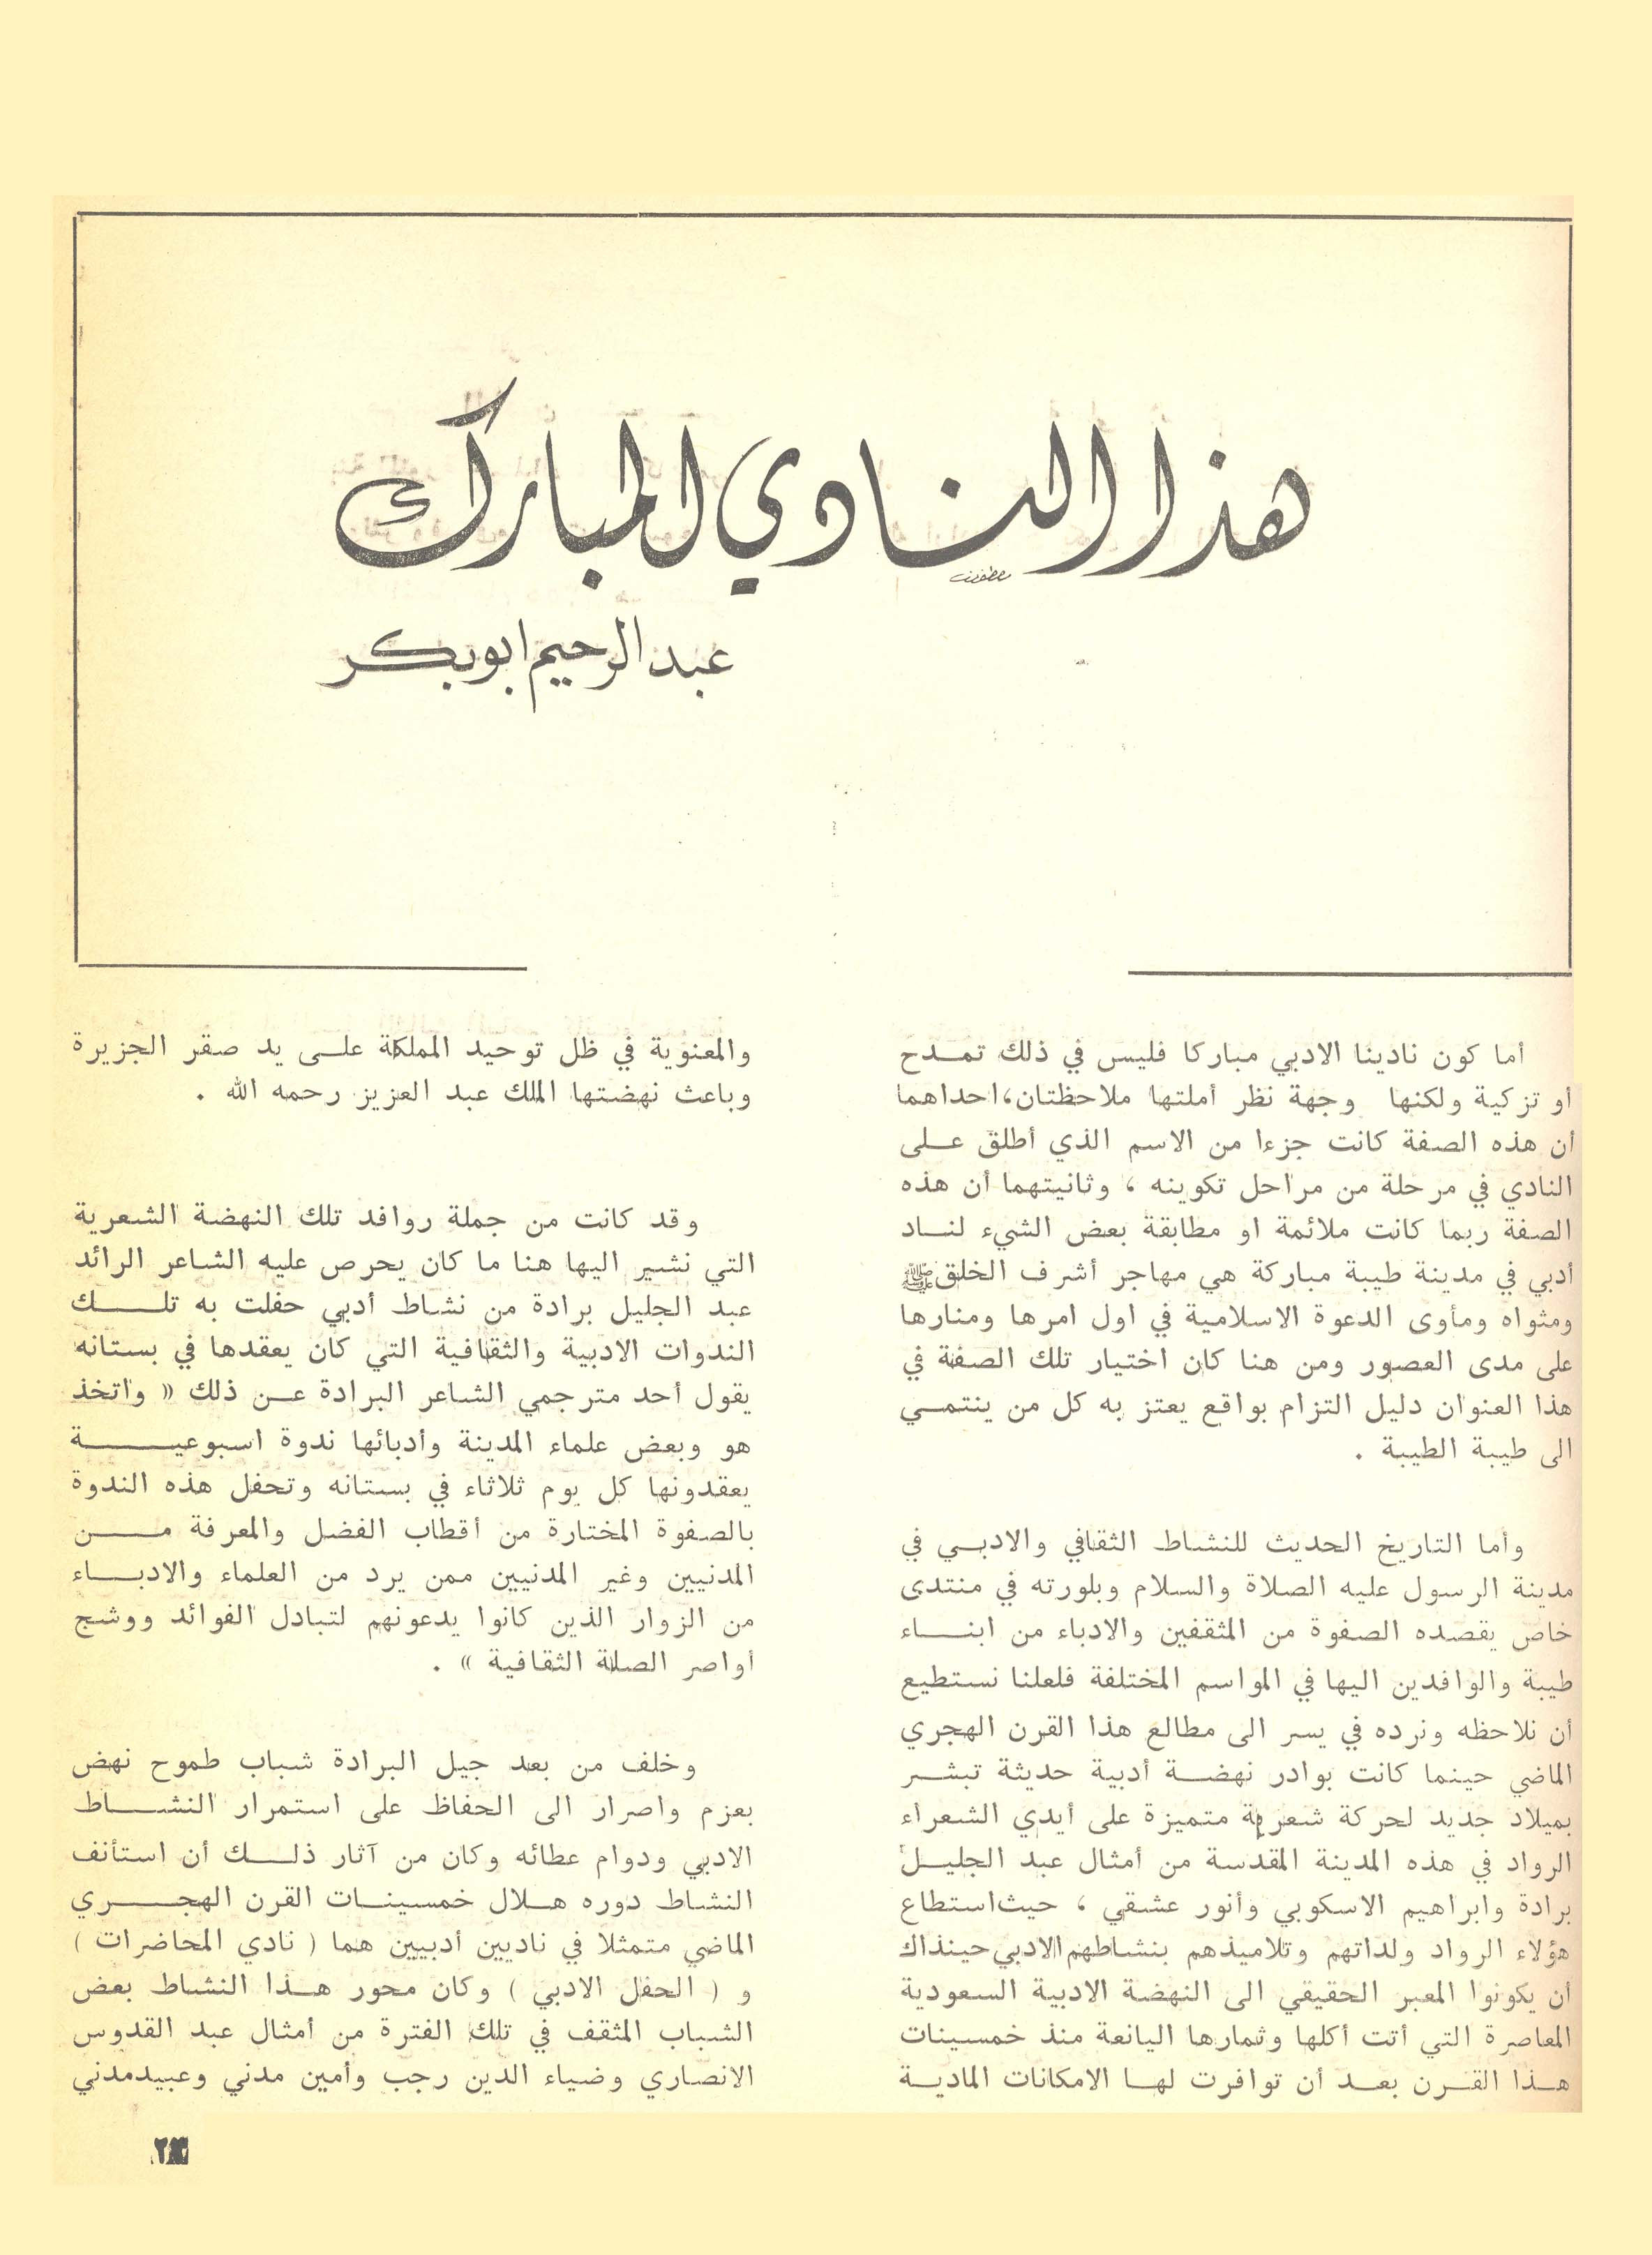 هذا النادي المبارك
عبد الرحيم ابوبكر
أما كون نادينا الادبي مباركا فليس في ذلك تمـدح
أو تزكية ولكنها وجهة نظر أملتها ملاحظتان،احداهما
أن هذه الصفة كانت جزءا من الاسم الذي أطلق عـلى
النادي في مرحلة من مراحل تكوينه ، وثانيتهما أن هذه
الصفة ربما كانت ملائمة او مطابقة بعض الشيء لنـاد
أدبي في مدينة طيبة مباركة هي مهاجر أشرف الخلق ﷺ
ومثواه ومأوى الدعوة الاسلامية في اول امرها ومنارها
على مدى العصور ومن هنا كان اختيار تلك الصفة في
هذا العنوان دليل التزام بواقع يعتز به كل من ينتمـي
الى طيبة الطيبة .
وأما التاريخ الحديث للنشاط الثقافي والادبـي في
مدينة الرسول عليه الصلاة والسلام وبلورته في منتدى
خاص يقصده الصفوة من المثقفين والادباء من ابنـاء
طيبة والوافدين اليها في المواسم المختلفة فلعلنا نستطيع
أن نلاحظه ونرده في يسر الى مطالع هذا القرن الهجري
الماضي حينما كانت بوادر نهضـة أدبية حديثة تبشـر
بميلاد جديد لحركة شعرية متميزة على أيدي الشعراء
الرواد في هذه المدينة المقدسة من أمثال عبد الجليـل
برادة وابراهيم الاسكوبي وأنور عشقي ، حيث استطاع
هؤلاء الرواد ولداتهم وتلاميذهم بنشاطهم الادبي حينذاك
أن يكونوا المعبر الحقيقي الى النهضة الادبية السعودية
المعاصرة التي أتت أكلها وثمارها اليانعة منذ خمسينات
هـذا القـرن بعـد أن توافرت لهـا الامكانات الماديـة
والمعنوية في ظل توحيد المملكة علـى يد صقر الجزيرة
وباعث نهضتها الملك عبد العزيز رحمه الله .
وقد كانت من جملة روافد تلك النهضة الشعرية
التي نشير اليها هنا ما كان يحرص عليه الشاعر الرائد
عبد الجليل برادة من نشاط أدبي حفلت به تلـــك
الندوات الادبية والثقافية التي كان يعقدها في بستانه
يقول أحد مترجمي الشاعر البرادة عـن ذلك « واتخذ
هو وبعض علماء المدينة وأدبائها ندوة اسبوعيـــة
يعقدونها كل يوم ثلاثاء في بستانه وتحفل هذه الندوة
بالصفوة المختارة من أقطاب الفضل والمعرفة مـــن
المدنيين وغير المدنيين ممن يرد من العلماء والادبـاء
من الزوار الذين كانوا يدعونهم لتبادل الفوائد ووشج
أواصر الصلة الثقافية » .
وخلف من بعد جيل البرادة شباب طموح نهض
بعزم واصرار الى الحفاظ على استمرار النشــاط
الادبي ودوام عطائه وكان من آثار ذلـك أن استأنف
النشاط دوره هـلال خمسينـات القرن الهجـــري
الماضي متمثلا في ناديين أدبيين هما ( نادي المحاضرات )
و ( الحفل الادبي ) وكان محور هـذا النشاط بعض
الشباب المثقف في تلك الفترة من أمثال عبد القدوس
الانصاري وضياء الدين رجب وأمين مدني وعبيدمدني